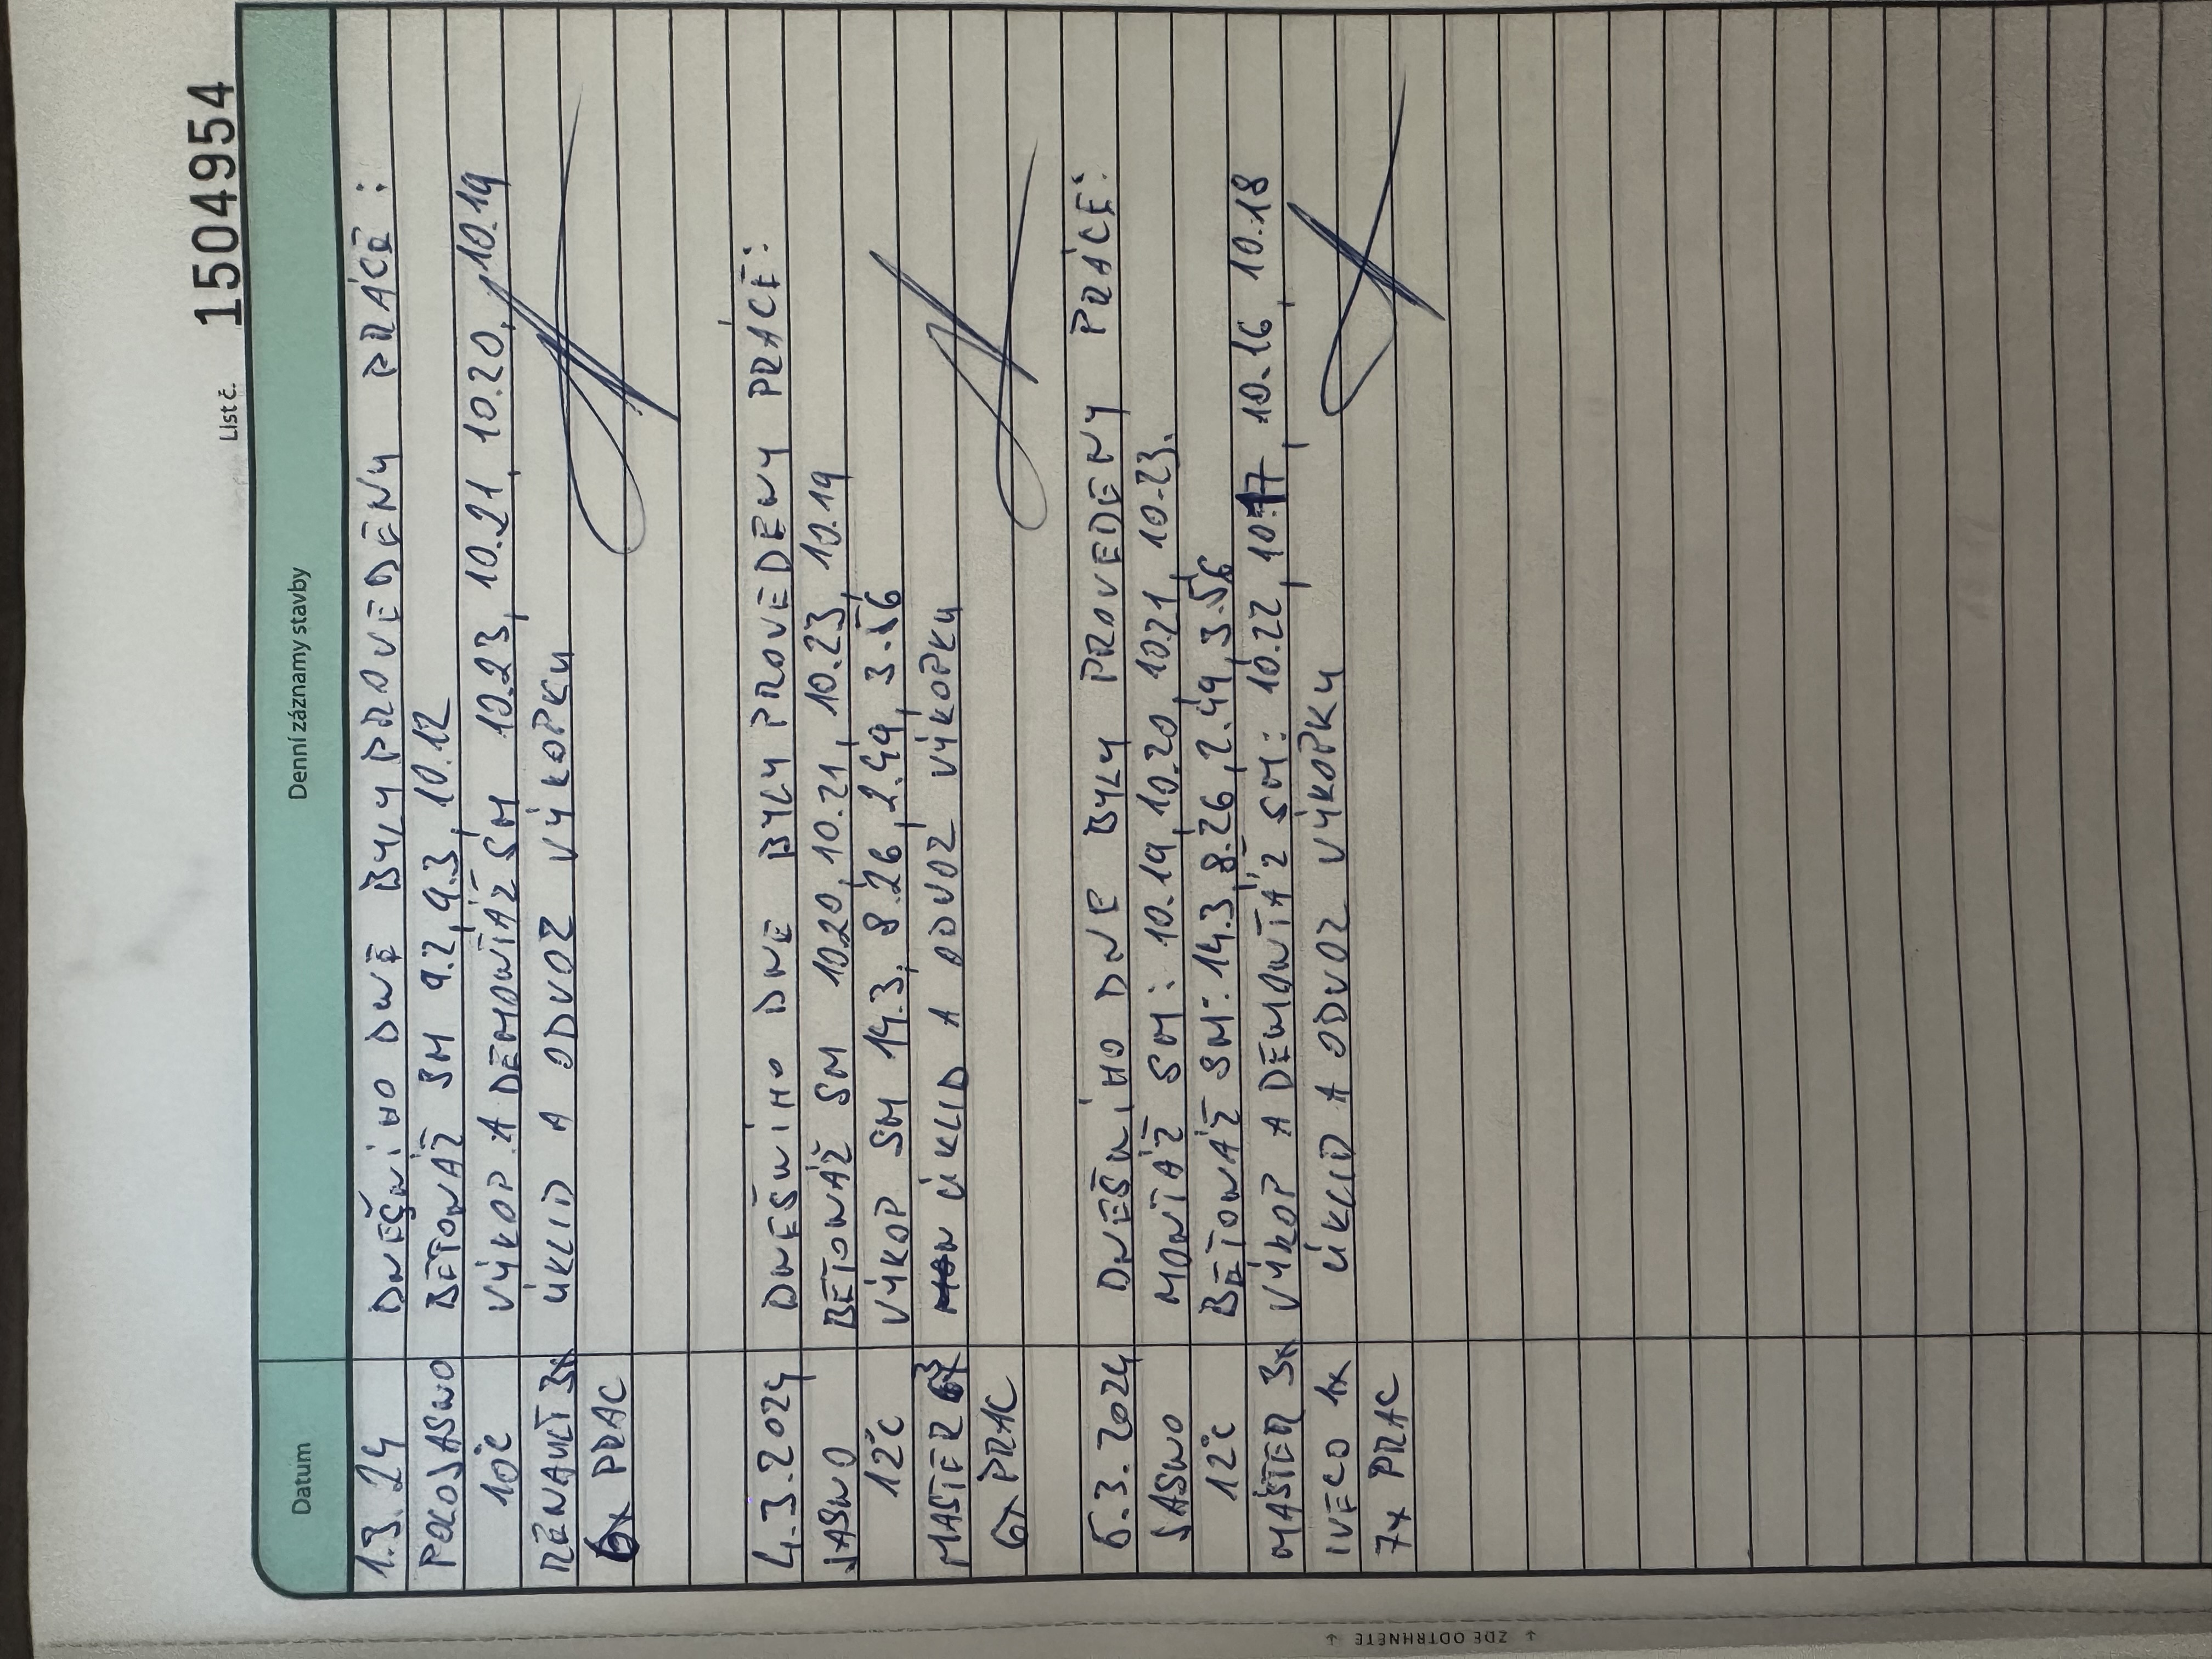 List č. 1504954
Datum Denní záznamy stavby
1.3.24 DNEŠNÍHO DNE BYLY PROVEDENY PRÁCE:
POLOJASNO BETONÁŽ SM 9.2, 9.3, 10.12
10°C VÝKOP A DEMONTÁŽ SM 10.23, 10.21, 10.20, 10.19
RENAULT 3x ÚKLID A ODVOZ VÝKOPKU
6x PRAC
4.3.2024 DNEŠNÍHO DNE BYLY PROVEDENY PRÁCE:
JASNO BETONÁŽ SM 10.20, 10.21, 10.23, 10.19
12°C VÝKOP SM 14.3, 8.26, 2.49, 3.56
MASTER ÚKLID A ODVOZ VÝKOPKU
6x PRAC
5.3.2024 DNEŠNÍHO DNE BYLY PROVEDENY PRÁCE:
JASNO MONTÁŽ SM: 10.19, 10.20, 10.21, 10.23.
12°C BETONÁŽ SM: 14.3, 8.26, 2.49, 3.56
MASTER 3x VÝKOP A DEMONTÁŽ SM: 10.22, 10.17, 10.16, 10.18
IVECO 1x ÚKLID A ODVOZ VÝKOPKU
7x PRAC
ZDE ODTRHNETE